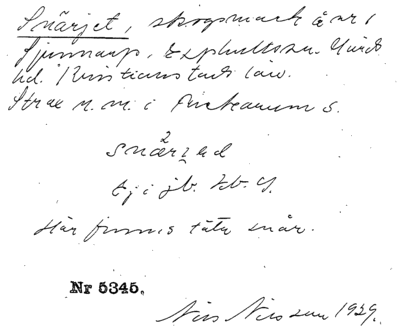 Snärjet, skogsmark å nr 1
Sjunnarp, Explhultssn. Gärds
hd. Kristianstads län.
Strax n.m. i
snär
Ej i jb. Eb. Y.
Här finnes täta snår.
Nr 5345.
Nils Nilsson 1929.